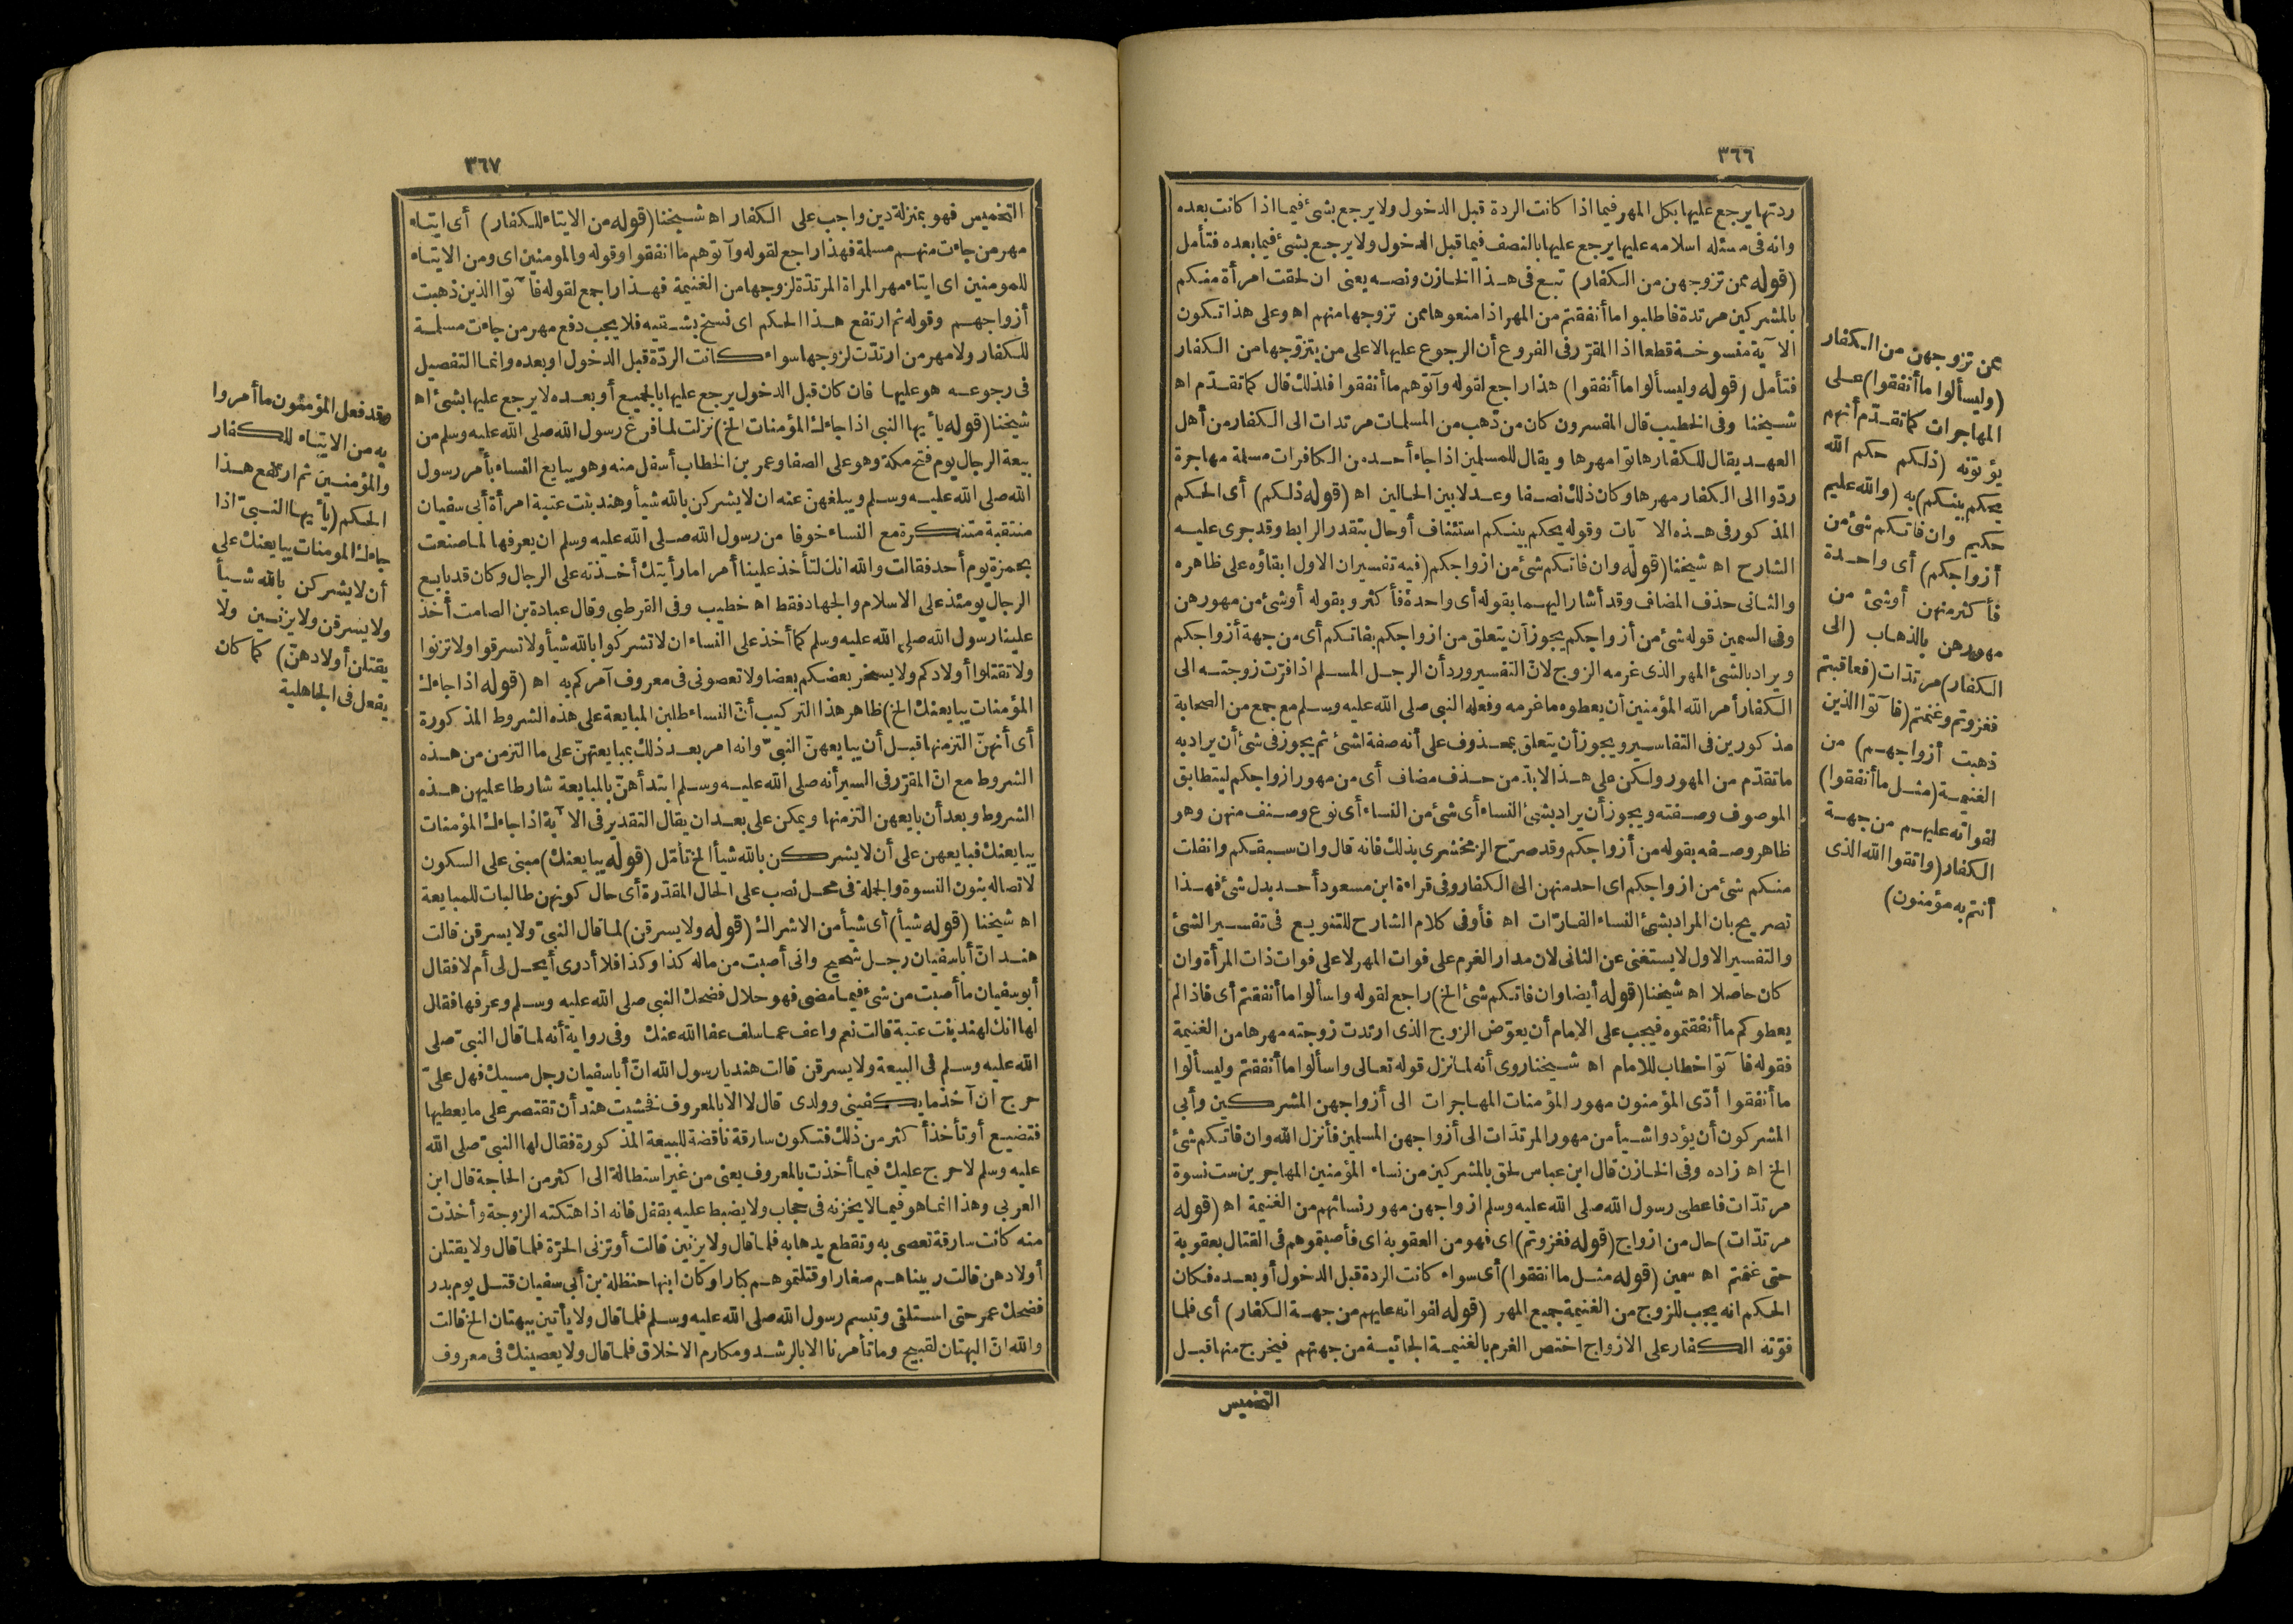 ٣٦٦
ردتها يرجع عليها بكل المهر فيما اذا كانت الردة قبل الدخول ولا يرجع بشئ فيما اذا كانت بعده
وانه فى مسئله اسلامه عليها يرجع عليها بالنصف فيما قبل الدخول ولا يرجع بشئ فيما بعده فتأمل
(قوله ممن تزوجهن من الكفار) تبع فى هذا الخازن ونصه يعنى ان لحقت امرأة منكم
بالمشركين مرتدة فاطلبوا ما أنفقتم من المهر اذا منعوها ممن تزوجها منهم اه وعلى هذا تكون
الآية منسوخة قطعا اذ المقرّر فى الفروع أن الرجوع عليها لا على من يتزوّجها من الكفار
فتأمل (قوله وليسألوا ما أنفقوا) هذا راجع لقوله وآتوهم ما أنفقوا فلذلك قال كما تقدّم اه
شيخنا وفى الخطيب قال المفسرون كان من ذهب من المسلمات مرتدات الى الكفار من أهل
العهد يقال للكفار هاتوا مهرها ويقال للمسلمين اذا جاء أحد من الكافرات مسلمة مهاجرة
ردّوا الى الكفار مهرها وكان ذلك نصفا وعدلا بين الحالين اه (قوله ذلكم) أى الحكم
المذكور فى هذه الآيات وقوله يحكم بينكم استئناف أو حال بتقدر الرابط وقد جرى عليه
الشارح اه شيخنا (قوله وان فاتكم شئ من ازواجكم) فيه تفسيران الاول ابقاؤه على ظاهره
والثانى حذف المضاف وقد أشار اليهما بقوله أى واحدة فأكثر وبقوله أو شئ من مهورهن
وفى السمين قوله شئ من أزواجكم يجوز أن يتعلق من ازواجكم بفاتكم أى من جهة أزواجكم
ويراد بالشئ المهر الذى غرمه الزوج لانّ التفسير ورد أن الرجل المسلم اذا فرّت زوجته الى
الكفار أمر الله المؤمنين أن يعطوه ما غرمه وفعله النبى صلى الله عليه وسلم مع جمع من الصحابة
مذكورين فى التفاسير ويجوز أن يتعلق بمحذوف على أنه صفة لشئ ثم يجوز فى شئ أن يراد به
ما تقدّم من المهور ولكن على هذا لابدّ من حذف مضاف أى من مهور ازواجكم ليتطابق
الموصوف وصفته ويجوز أن يراد بشئ النساء أى شئ من النساء أى نوع وصنف منهن وهو
ظاهر وصفه بقوله من أزواجكم وقد صرّح الزمخشرى بذلك فانه قال وان سبقكم وانفلت
منكم شئ من ازواجكم اى احد منهن الى الكفار وفى قراءة ابن مسعود أحد بدل شئ فهذا
تصريح بان المراد بشئ النساء الفارّات اه فأو فى كلام الشارح للتنويع فى تفسير الشئ
والتفسير الاول لا يستغنى عن الثانى لان مدار الغرم على فوات المهر لا على فوات ذات المرأة وان
كان حاصلا اه شيخنا (قوله أيضا وان فاتكم شئ الخ) راجع لقوله واسألوا ما أنفقتم أى فاذا لم
يعطوكم ما أنفقتموه فيجب على الامام أن يعوّض الزوج الذى ارتدت زوجته مهرها من الغنيمة
فقوله فآتوا خطاب للامام اه شيخنا روى أنه لما نزل قوله تعالى واسألوا ما أنفقتم وليسألوا
ما أنفقوا أدّى المؤمنون مهور المؤمنات المهاجرات الى أزواجهن المشركين وأبى
المشركون أن يؤدوا شيأ من مهور المرتدّات الى أزواجهن المسلمين فأنزل الله وان فاتكم شئ
الخ اه زاده وفى الخازن قال ابن عباس لحق بالمشركين من نساء المؤمنين المهاجرين ست نسوة
مرتدّات فاعطى رسول الله صلى الله عليه وسلم ازواجهن مهور نسائهم من الغنيمة اه (قوله
مرتدّات) حال من ازواج (قوله فغزوتم) اى فهو من العقوبة اى فأصبتموهم فى القتال بعقوبة
حتى غنمتم اه سمين (قوله مثل ما انفقوا) أى سواء كانت الردة قبل الدخول أو بعده فكان
الحكم انه يجب للزوج من الغنيمة جميع المهر (قوله لفواته عليهم من جهة الكفار) أى فلما
فوّته الكفار على الازواج اختص الغرم بالغنيمة الجائية من جهتهم فيخرج منها قبل
التخميس
ممن تزوجهن من الكفار
(وليسألوا ما أنفقوا) على
المهاجرات كما تقدّم أنهم
يؤتونه (ذلكم حكم الله
يحكم بينكم) به (والله عليم
حكيم وان فاتكم شئ من
أزواجكم) أى واحدة
فأكثر منهن أو شئ من
مهورهن بالذهاب (الى
الكفار) مرتدّات (فعاقبتم
فغزوتم وغنمتم (فآتوا الذين
ذهبت أزواجهم) من
الغنيمة (مثل ما أنفقوا)
لفواته عليهم من جهة
الكفار (واتقوا الله الذى
أنتم به مؤمنون)
٣٦٧
التخميس فهو بمنزلة دين واجب على الكفار اه شيخنا (قوله من الايتاء للكفار) أى ايتاء
مهر من جاءت منهم مسلمة فهذا راجع لقوله وآتوهم ما انفقوا وقوله والمومنين اى ومن الايتاء
للمومنين اى ايتاء مهر المراة المرتدّة لزوجها من الغنيمة فهذا راجع لقوله فآتوا الذين ذهبت
أزواجهم وقوله ثم ارتفع هذا الحكم اى نسخ بشقيه فلا يجب دفع مهر من جاءت مسلمة
للكفار ولا مهر من ارتدّت لزوجها سواء كانت الردّة قبل الدخول او بعده وانما التفصيل
فى رجوعه هو عليها فان كان قبل الدخول يرجع عليها بالجميع أو بعده لا يرجع عليها بشئ اه
شيخنا (قوله يأيها النبى اذا جاءك المؤمنات الخ) نزلت لما فرغ رسول الله صلى الله عليه وسلم من
بيعة الرجال يوم فتح مكة وهو على الصفا وعمر بن الخطاب أسفل منه وهو يبايع النساء بأمر رسول
الله صلى الله عليه وسلم ويبلغهنّ عنه ان لا يشركن بالله شيأ وهند بنت عتبة امرأة أبى سفيان
منتقبة متنكرة مع النساء خوفا من رسول الله صلى الله عليه وسلم ان يعرفها لما صنعت
بحمزة يوم أحد فقالت والله انك لتأخذ علينا أمرا ما رأيتك أخذته على الرجال وكان قد بايع
الرجال يومئذ على الاسلام والجهاد فقط اه خطيب وفى القرطبى وقال عبادة بن الصامت أخذ
علينا رسول الله صلى الله عليه وسلم كما أخذ على النساء ان لا تشركوا بالله شيأ ولا تسرقوا ولا تزنوا
ولا تقتلوا أولادكم ولا يسخر بعضكم بعضا ولا تعصونى فى معروف آمركم به اه (قوله اذا جاءك
المؤمنات يبايعنك الخ) ظاهر هذا التركيب أنّ النساء طلبن المبايعة على هذه الشروط المذكورة
أى أنهنّ التزمنها قبل أن يبايعهنّ النبىّ وانه امر بعد ذلك بمبايعتهنّ على ما التزمن من هذه
الشروط مع انّ المقرّر فى السير أنه صلى الله عليه وسلم ابتدأهنّ بالمبايعة شارطا عليهن هذه
الشروط وبعد أن بايعهن التزمنها ويمكن على بعد ان يقال التقدير فى الآية اذا جاءك المؤمنات
يبايعنك فبايعهن على أن لا يشركن بالله شيأ الخ تأمّل (قوله يبايعنك) مبنى على السكون
لاتصاله بنون النسوة والجملة فى محل نصب على الحال المقدّرة أى حال كونهن طالبات للمبايعة
اه شيخنا (قوله شيأ) أى شيأ من الاشراك (قوله ولا يسرقن) لما قال النبىّ ولا يسرقن قالت
هند انّ أبا سفيان رجل شحيح وانى أصبت من ماله كذا وكذا فلا أدرى أيحل لى أم لا فقال
أبو سفيان ما أصبت من شئ فيما مضى فهو حلال فضحك النبى صلى الله عليه وسلم وعرفها فقال
لها انك لهند بنت عتبة قالت نعم واعف عما سلف عفا الله عنك وفى رواية أنه لما قال النبىّ صلى
الله عليه وسلم فى البيعة ولا يسرقن قالت هند يا رسول الله انّ أبا سفيان رجل مسيك فهل علىّ
حرج ان آخذ ما يكفينى وولدى قال لا الا بالمعروف فخشيت هند أن تقتصر على ما يعطيها
فتضيع أو تأخذ أكثر من ذلك فتكون سارقة ناقضة للبيعة المذكورة فقال لها النبىّ صلى الله
عليه وسلم لا حرج عليك فيما أخذت بالمعروف يعنى من غير استطالة الى اكثر من الحاجة قال ابن
العربى وهذا انما هو فيما لا يخزنه فى حجاب ولا يضبط عليه بقفل فانه اذا هتكته الزوجة وأخذت
منه كانت سارقة تعصى به وتقطع يدها به فلما قال ولا يزنين قالت أو تزنى الحرّة فلما قال ولا يقتلن
أولادهن قالت ربيناهم صغارا وقتلتموهم كبارا وكان ابنها حنظلة بن أبى سفيان قتل يوم بدر
فضحك عمر حتى استلقى وتبسم رسول الله صلى الله عليه وسلم فلما قال ولا يأتين ببهتان الخ قالت
والله انّ البهتان لقبيح وما تأمرنا الا بالرشد ومكارم الاخلاق فلما قال ولا يعصينك فى معروف
وقد فعل المؤمنون ما أمروا
به من الايتاء للكفار
والمؤمنين ثم ارتفع هذا
الحكم (يأيها النبىّ اذا
جاءك المومنات يبايعنك على
أن لا يشركن بالله شيأ
ولا يسرقن ولا يزنين ولا
يقتلن أولادهنّ) كما كان
يفعل فى الجاهلية